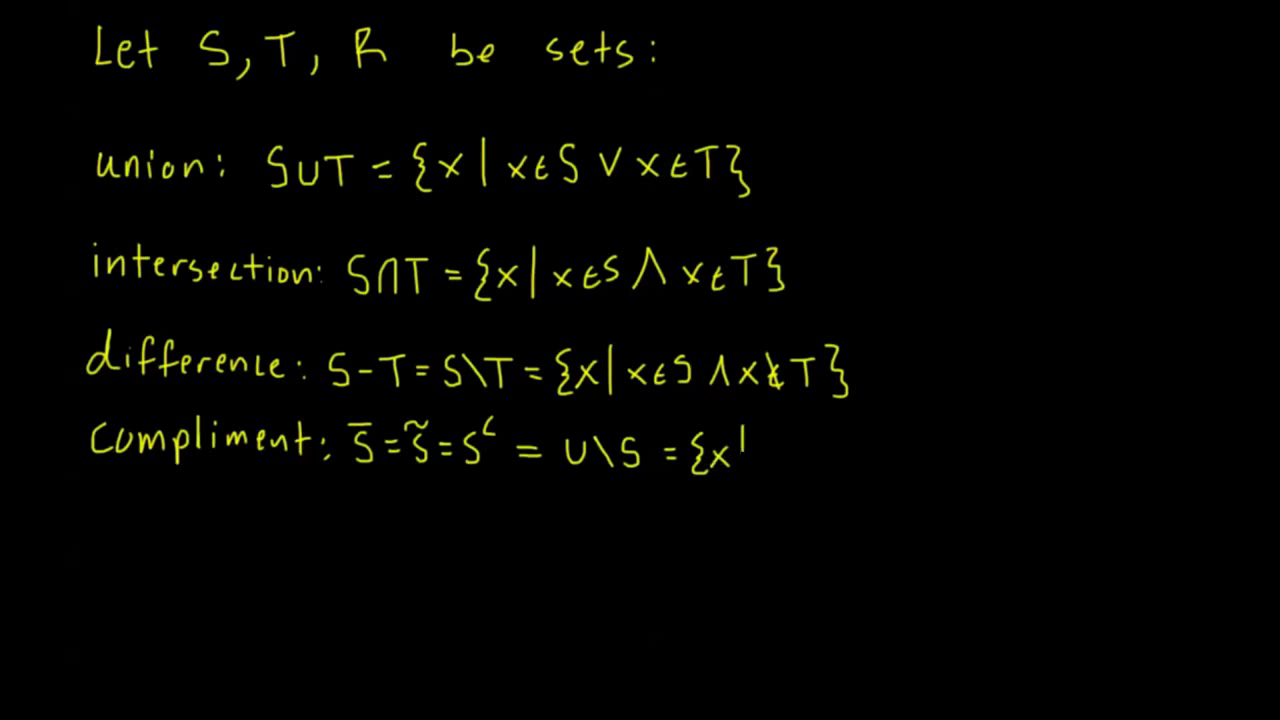 Let S, T, R be sets:
union: S∪T = {x | x∈S ∨ x∈T}
intersection: S∩T = {x | x∈S ∧ x∈T}
difference: S-T = S\T = {x | x∈S ∧ x∉T}
Compliment: S̅ = S̃ = Sᶜ = U\S = {x|